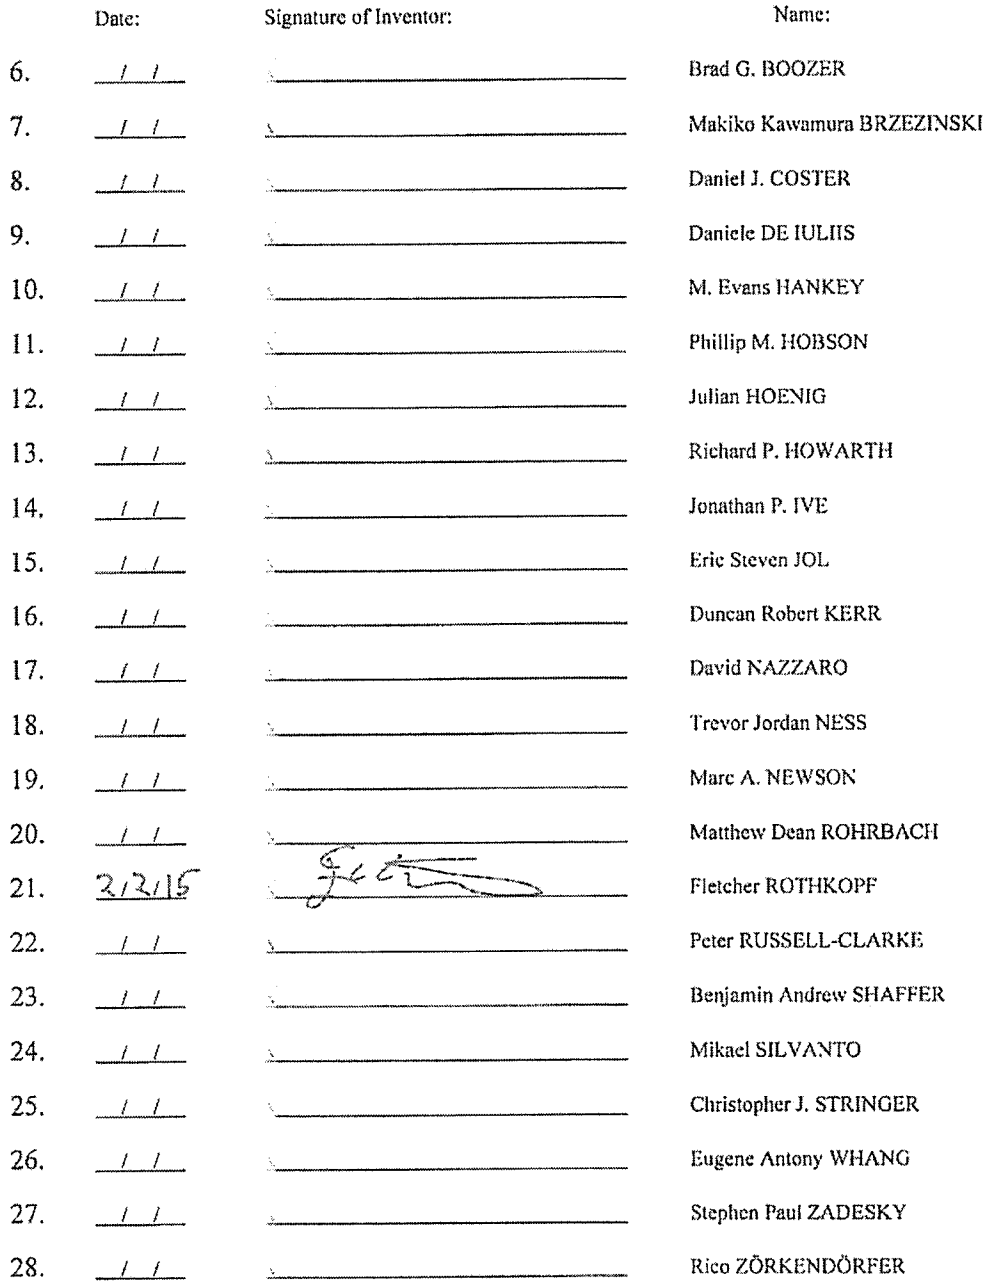 Date: Signature of Inventor: Name:
6. / / Brad G. BOOZER
7. / / Makiko Kawamura BRZEZINSKI
8. / / Daniel J. COSTER
9. / / Daniele DE IULIIS
10. / / M. Evans HANKEY
11. / / Phillip M. HOBSON
12. / / Julian HOENIG
13. / / Richard P. HOWARTH
14. / / Jonathan P. IVE
15. / / Eric Steven JOL
16. / / Duncan Robert KERR
17. / / David NAZZARO
18. / / Trevor Jordan NESS
19. / / Marc A. NEWSON
20. / / Matthew Dean ROHRBACH
21. 2/2/15 Fletcher ROTHKOPF
22. / / Peter RUSSELL-CLARKE
23. / / Benjamin Andrew SHAFFER
24. / / Mikael SILVANTO
25. / / Christopher J. STRINGER
26. / / Eugene Antony WHANG
27. / / Stephen Paul ZADESKY
28. / / Rico ZÖRKENDÖRFER